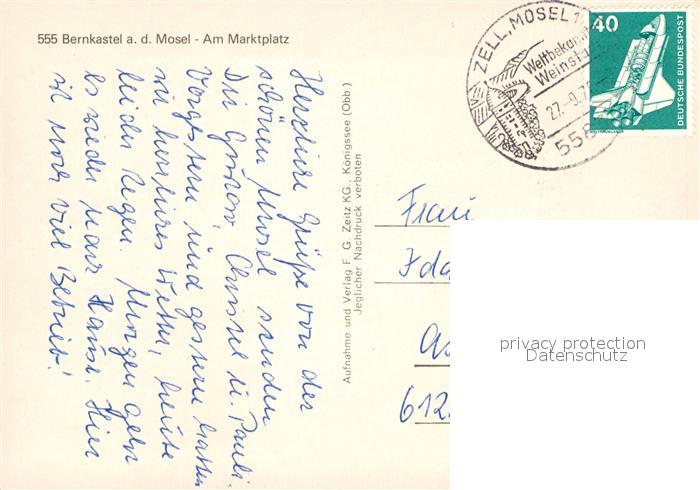 555 Bernkastel a. d. Mosel - Am Marktplatz
Herzliche Grüße von der
schönen Mosel senden
Dir Christel u. Pauli.
Vorgestern und gestern hatten
wir Wetter, heute
leider Regen. Morgen geht
es wieder nach Hause. Hier
ist noch viel Betrieb!
Aufnahme und Verlag F. G. Zeitz KG., Königssee (Obb.)
Jeglicher Nachdruck verboten
ZELL, MOSEL 1
Weltbekan
Weinst
27.-9.7
558
40
DEUTSCHE BUNDESPOST
WELTRAUMLABOR
Frau
Ida
612
privacy protection
Datenschutz